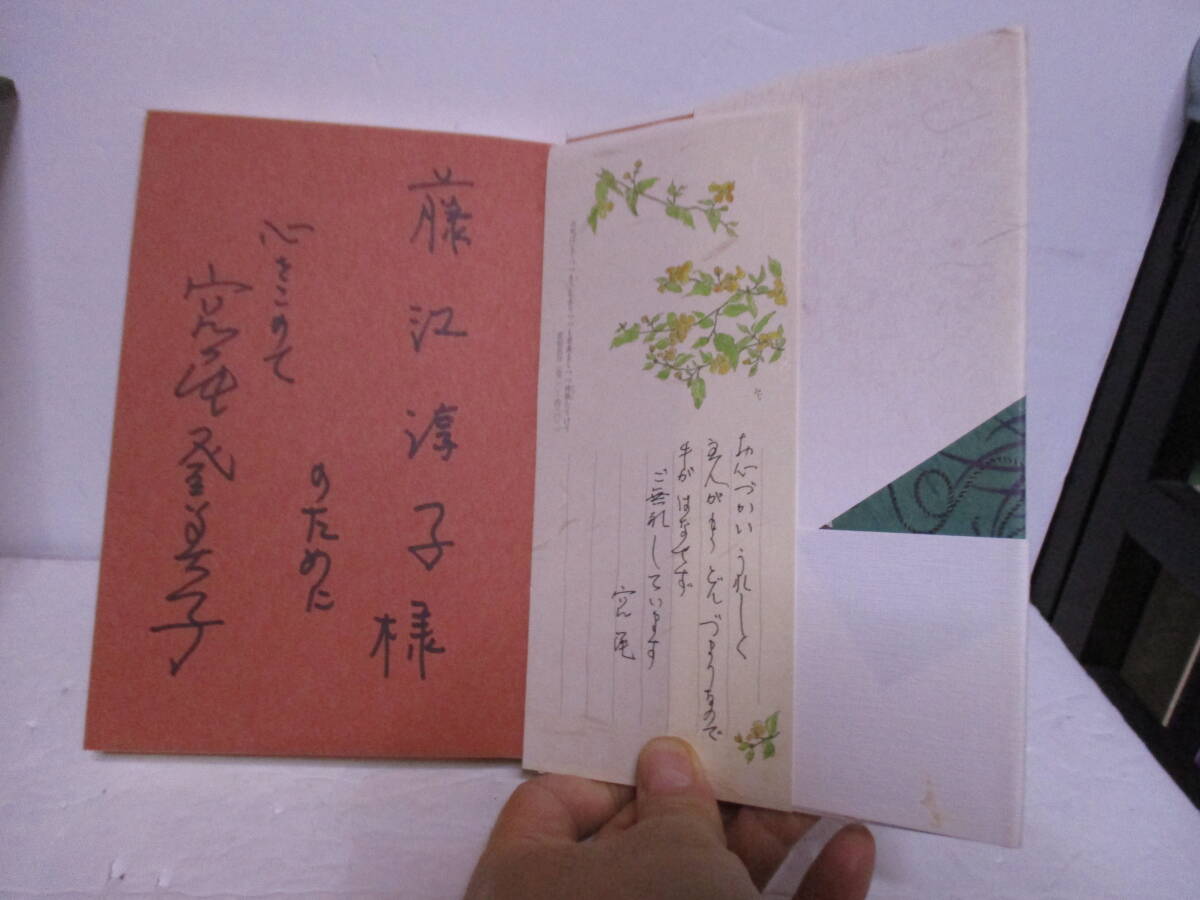 藤江淳子様
のために
心をこめて
宮尾登美子
お心づかいうれしく
主人がもうどんづまりなので
手がはなせず
ご無礼しています
宮尾